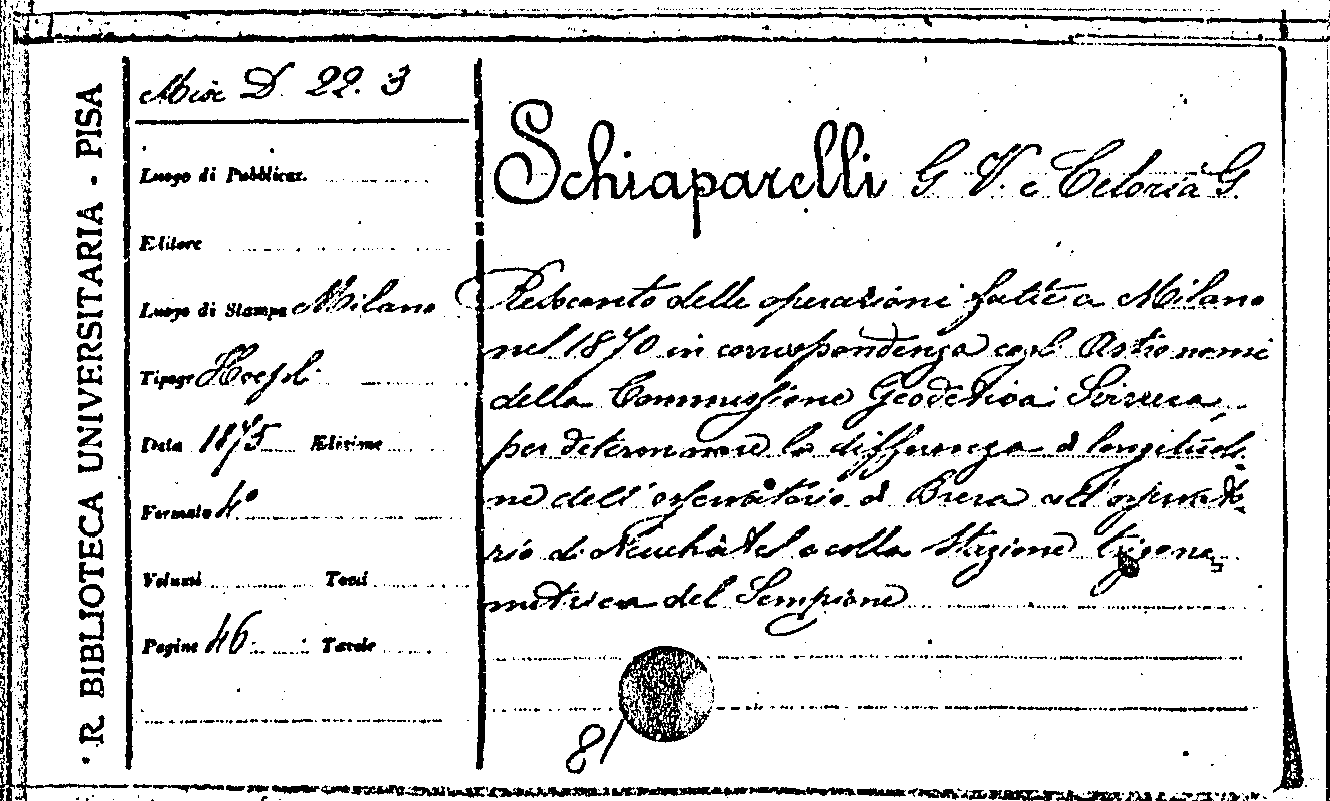 R. BIBLIOTECA UNIVERSITARIA - PISA
Misc D. 22. 3
Luogo di Pubblicaz.
Editore
Luogo di Stampa Milano
Tipogr Hoepli
Data 1875 Edizione
Formato 4°
Volumi Tomi
Pagine 46 Tavole
Schiaparelli G. V. e Celoria G.
Resoconto delle operazioni fatte a Milano
nel 1870 in corrispondenza cogli Astronomi
della Commissione Geodetica Svizzera
per determinare la differenza di longitudi-
ne dell'osservatorio di Brera all'osservato-
rio di Neuchâtel e colla Stazione trigono-
metrica del Sempione
81